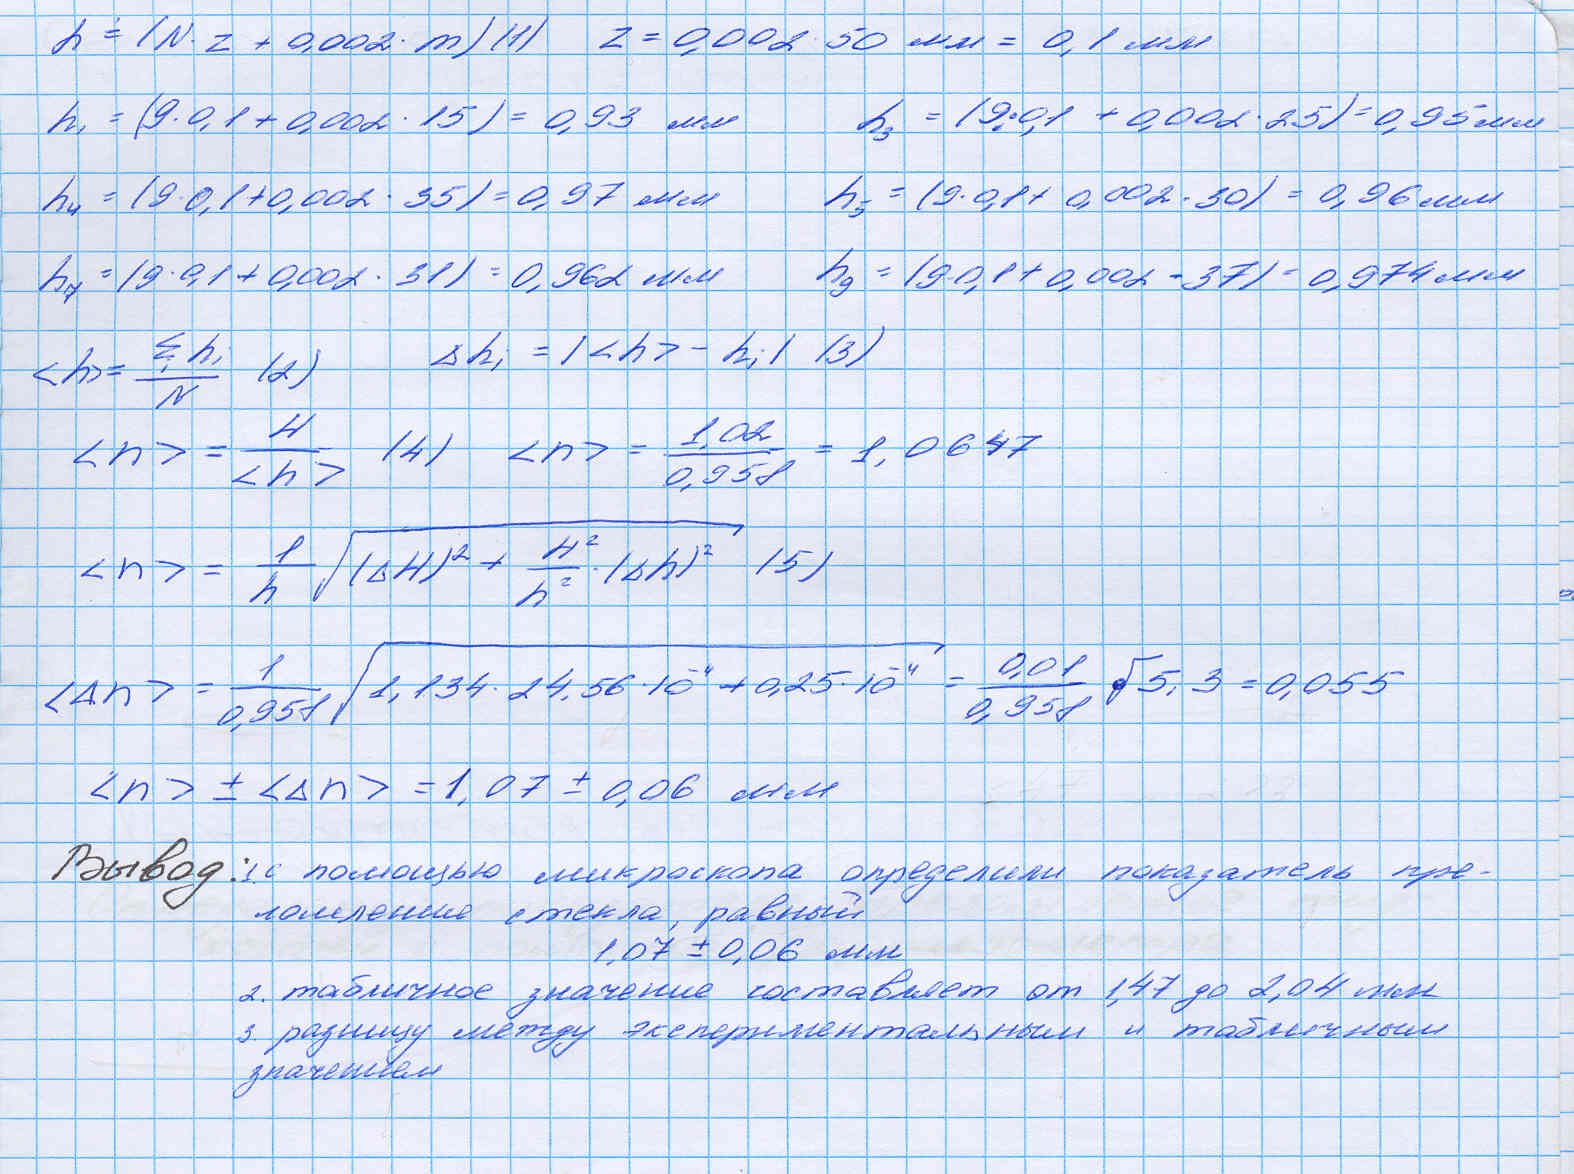 h = (N·z + 0,002·m) (1) z = 0,002·50 мм = 0,1 мм
h₁ = (9·0,1 + 0,002·15) = 0,93 мм h₃ = (9·0,1 + 0,002·25) = 0,95 мм
h₄ = (9·0,1 + 0,002·35) = 0,97 мм h₅ = (9·0,1 + 0,002·30) = 0,96 мм
h₇ = (9·0,1 + 0,002·31) = 0,962 мм h₉ = (9·0,1 + 0,002·37) = 0,974 мм
<h> = Σhᵢ/N (2) Δhᵢ = |<h> - hᵢ| (3)
<n> = H/<h> (4) <n> = 1,02/0,958 = 1,0647
<n> = 1/h √((ΔH)² + H²/h²·(Δh)²) (5)
<Δn> = 1/0,958 √(1,134·24,56·10⁻⁴ + 0,25·10⁻⁴) = 0,01/0,958 √5,3 = 0,055
<n> ± <Δn> = 1,07 ± 0,06 мм
Вывод: 1. с помощью микроскопа определили показатель пре-
ломление стекла, равный
1,07 ± 0,06 мм
2. табличное значение составляет от 1,47 до 2,04 мм
3. разницу между экспериментальным и табличным
значением